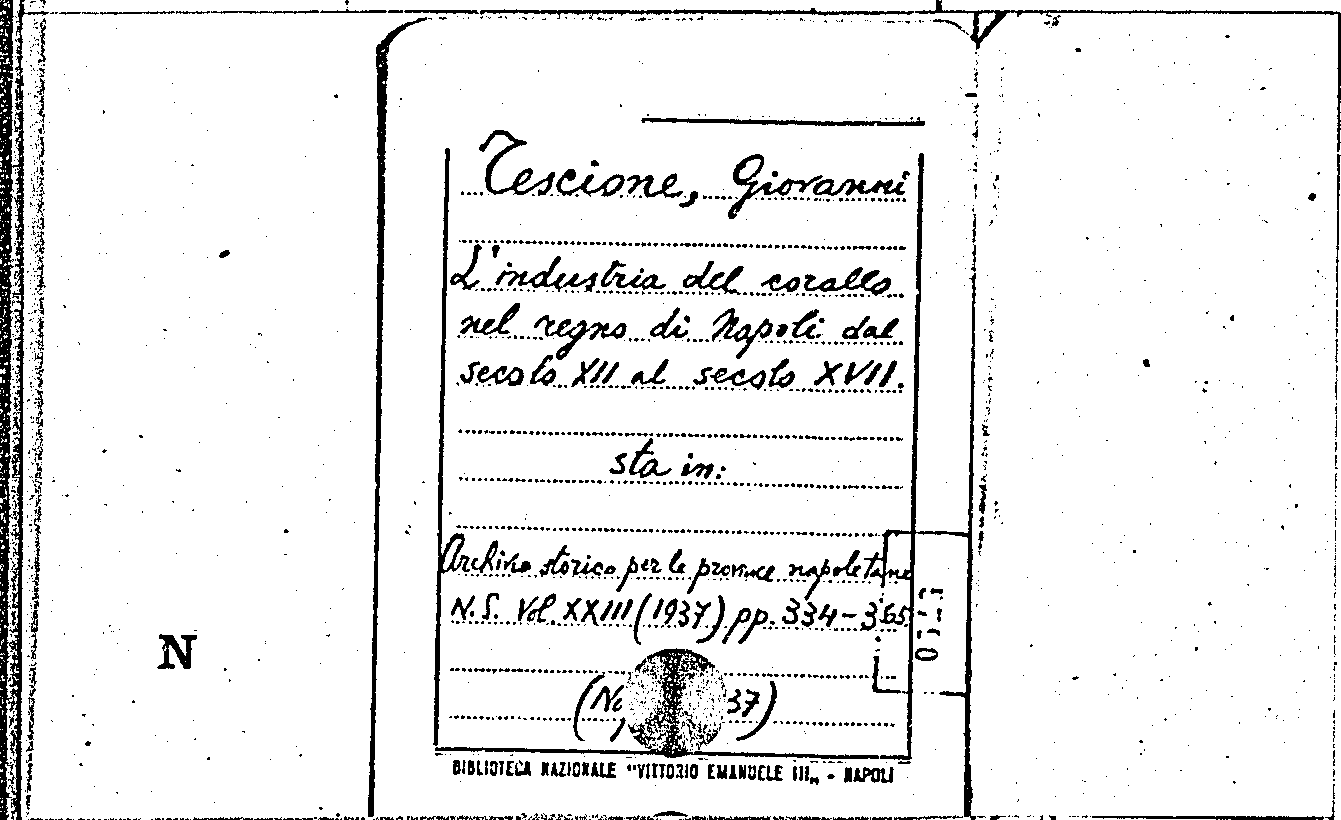 Tescione, Giovanni
L'industria del corallo
nel regno di Napoli dal
secolo XII al secolo XVII.
sta in:
Archivio storico per le province napoletane
N.S. Vol. XXIII (1937) pp. 334-365
N
37)
BIBLIOTECA NAZIONALE "VITTORIO EMANUELE III„ - NAPOLI